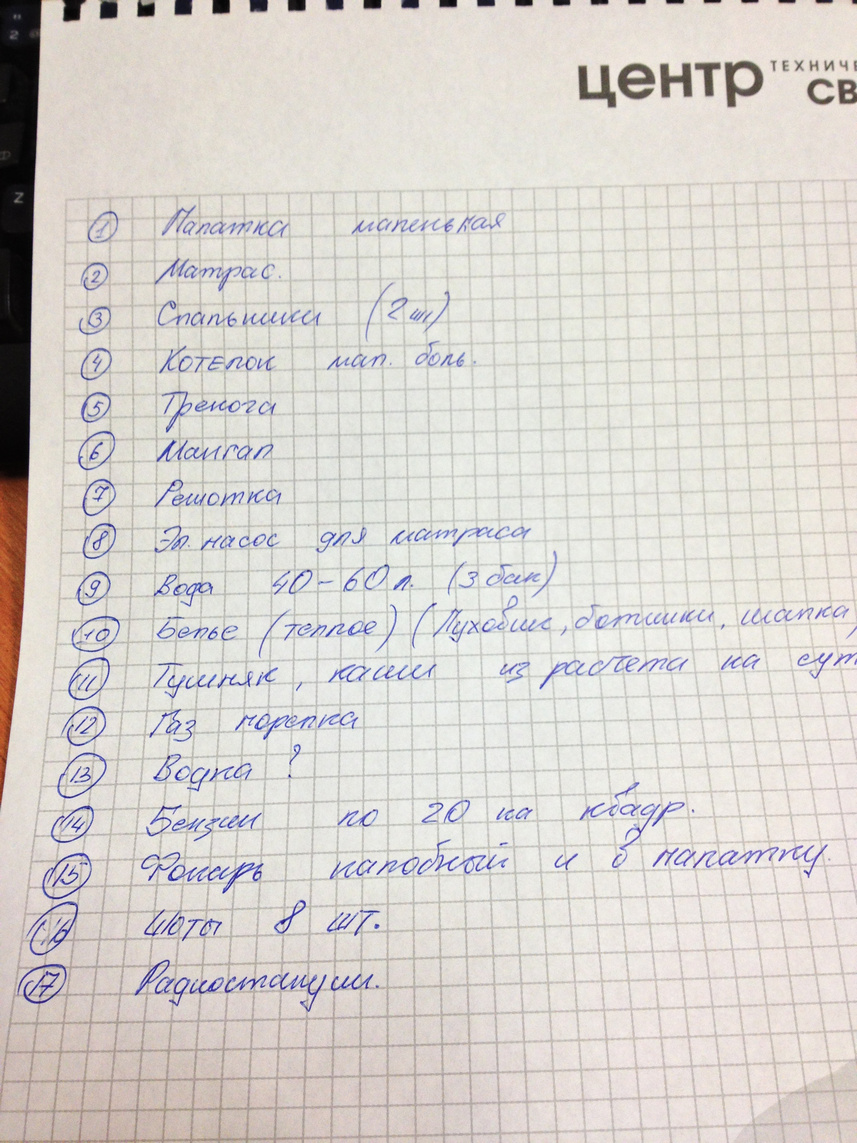 центр ТЕХНИЧЕ
СВ
1 Палатка маленькая
2 Матрас.
3 Спальники (2 шт)
4 Котелок мал. боль.
5 Тренога
6 Мангал
7 Решотка
8 Эл. насос для матраса
9 Вода 40-60 л. (3 бак)
10 Белье (теплое) (Пуховик, ботинки, шапка)
11 Тушняк, каши из расчета на сут
12 Газ горелка
13 Водка ?
14 Бензин по 20 на квадр.
15 Фонарь налобный и в палатку.
16 Шоты 8 шт.
17 Радиостанции.
Z
Ф
2
"